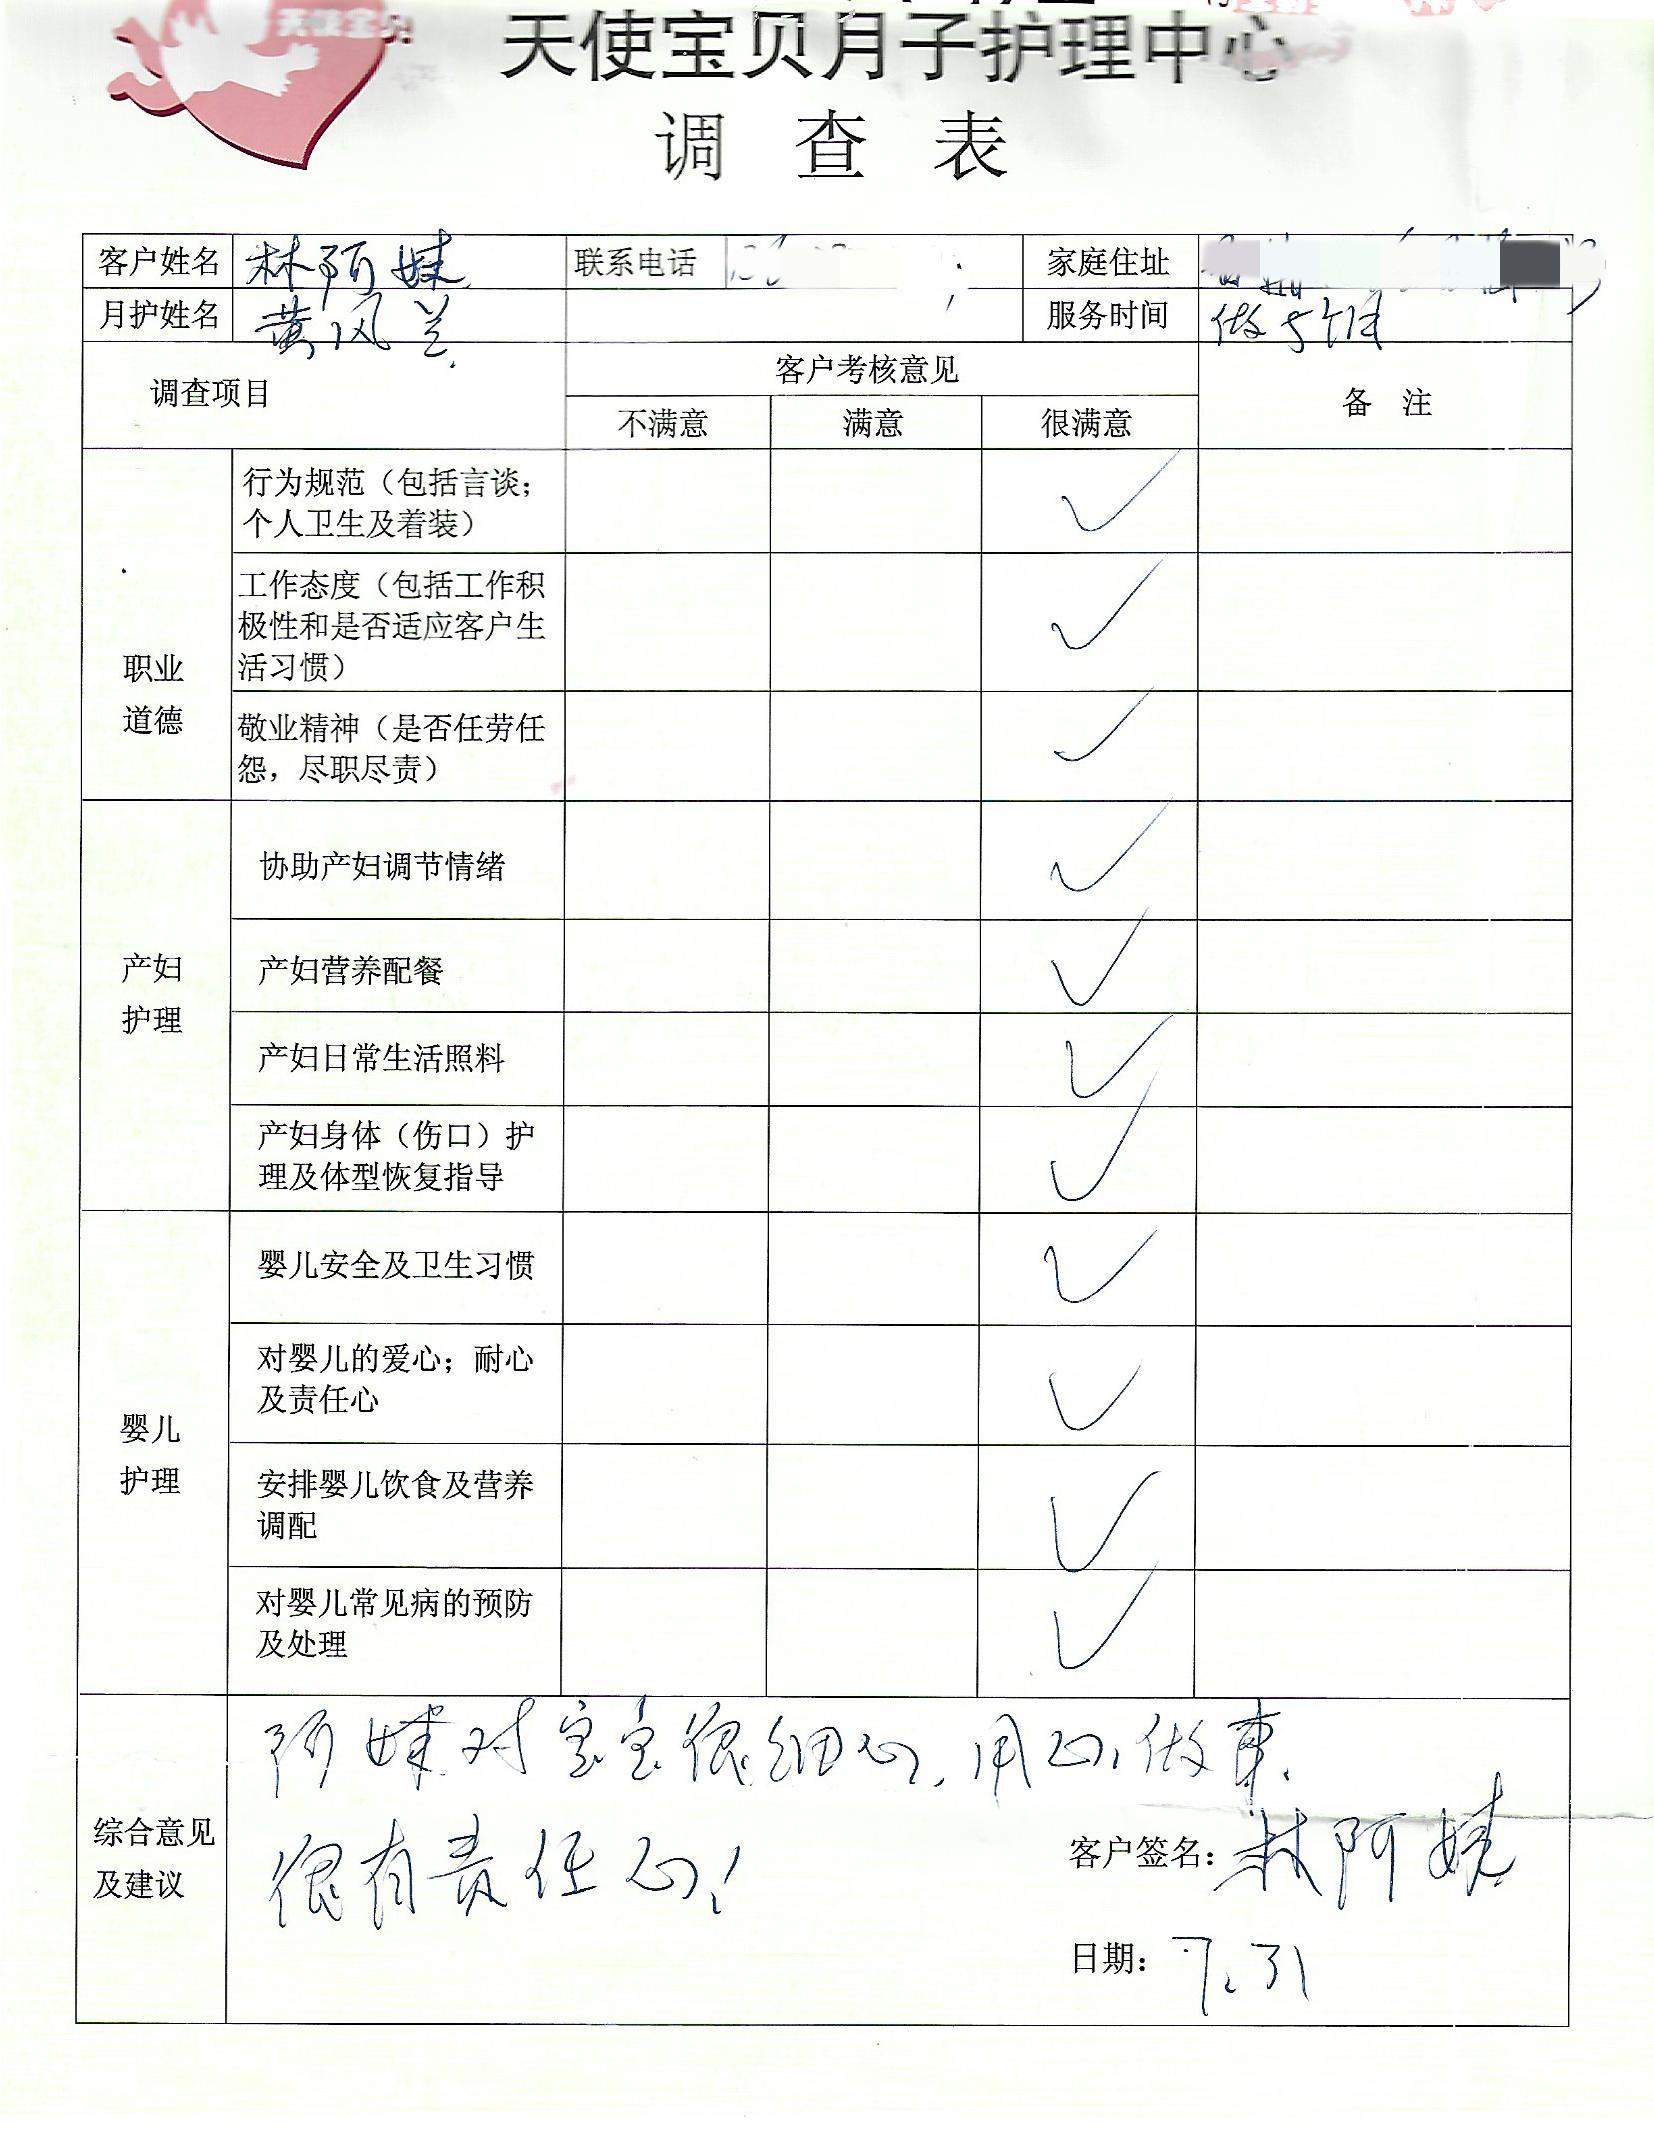 天使宝贝
天使宝贝月子护理中心
调 查 表
客户姓名 林阿妹 联系电话 家庭住址
月护姓名 黄风兰 服务时间 做5个月
调查项目 客户考核意见 备 注
不满意 满意 很满意
职业
道德
行为规范（包括言谈；
个人卫生及着装） ✓
工作态度（包括工作积
极性和是否适应客户生
活习惯） ✓
敬业精神（是否任劳任
怨，尽职尽责） ✓
产妇
护理
协助产妇调节情绪 ✓
产妇营养配餐 ✓
产妇日常生活照料 ✓
产妇身体（伤口）护
理及体型恢复指导 ✓
婴儿
护理
婴儿安全及卫生习惯 ✓
对婴儿的爱心；耐心
及责任心 ✓
安排婴儿饮食及营养
调配 ✓
对婴儿常见病的预防
及处理 ✓
综合意见
及建议
阿妹对宝宝很细心，用心做事，
很有责任心！
客户签名：林阿妹
日期：7.31